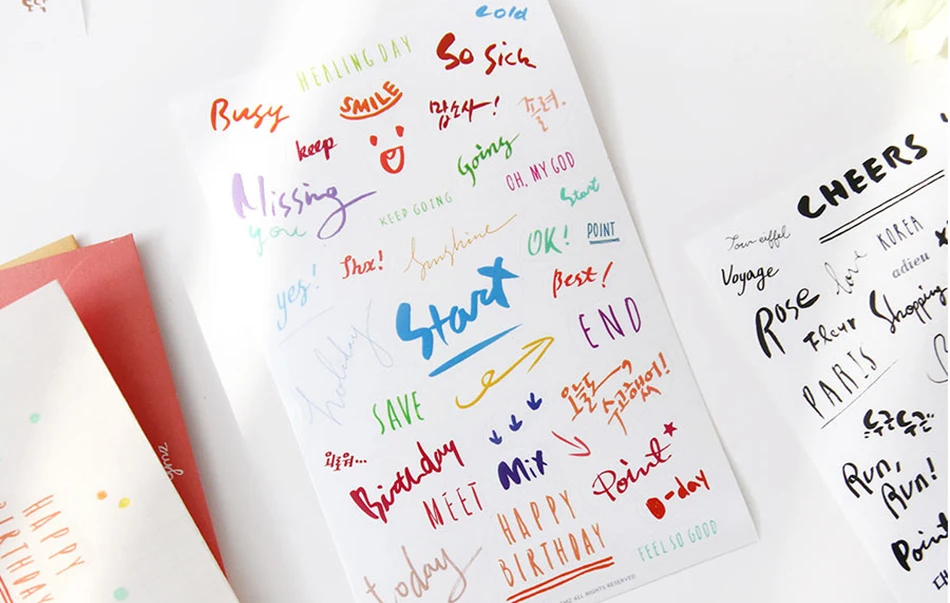 cold
HEALING DAY
So Sick
Busy
SMILE
맙소사!
졸려.
keep
Going
OH, MY GOD
Missing
you
KEEP GOING
Start
yes!
Thx!
Sunshine
OK!
POINT
Best!
Start
holiday
END
SAVE
오늘도,
수고했어!
외로워...
Birthday
Mix
Point
MEET
D-day
HAPPY
BIRTHDAY
FEEL SO GOOD
today
ALL RIGHTS RESERVED
CHEERS
Tour eiffel
KOREA
Voyage
love
adieu
Rose
Fleur
Shopping
PARIS
두근두근
Run,
Run!
Point
HAPPY
BIRTHDAY